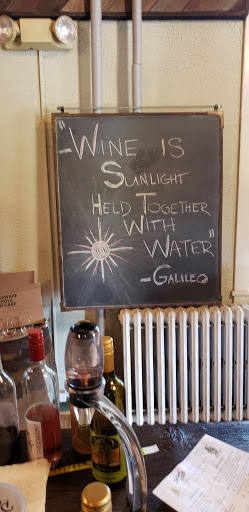 "-Wine is
Sunlight
Held Together
With
Water"
-Galileo